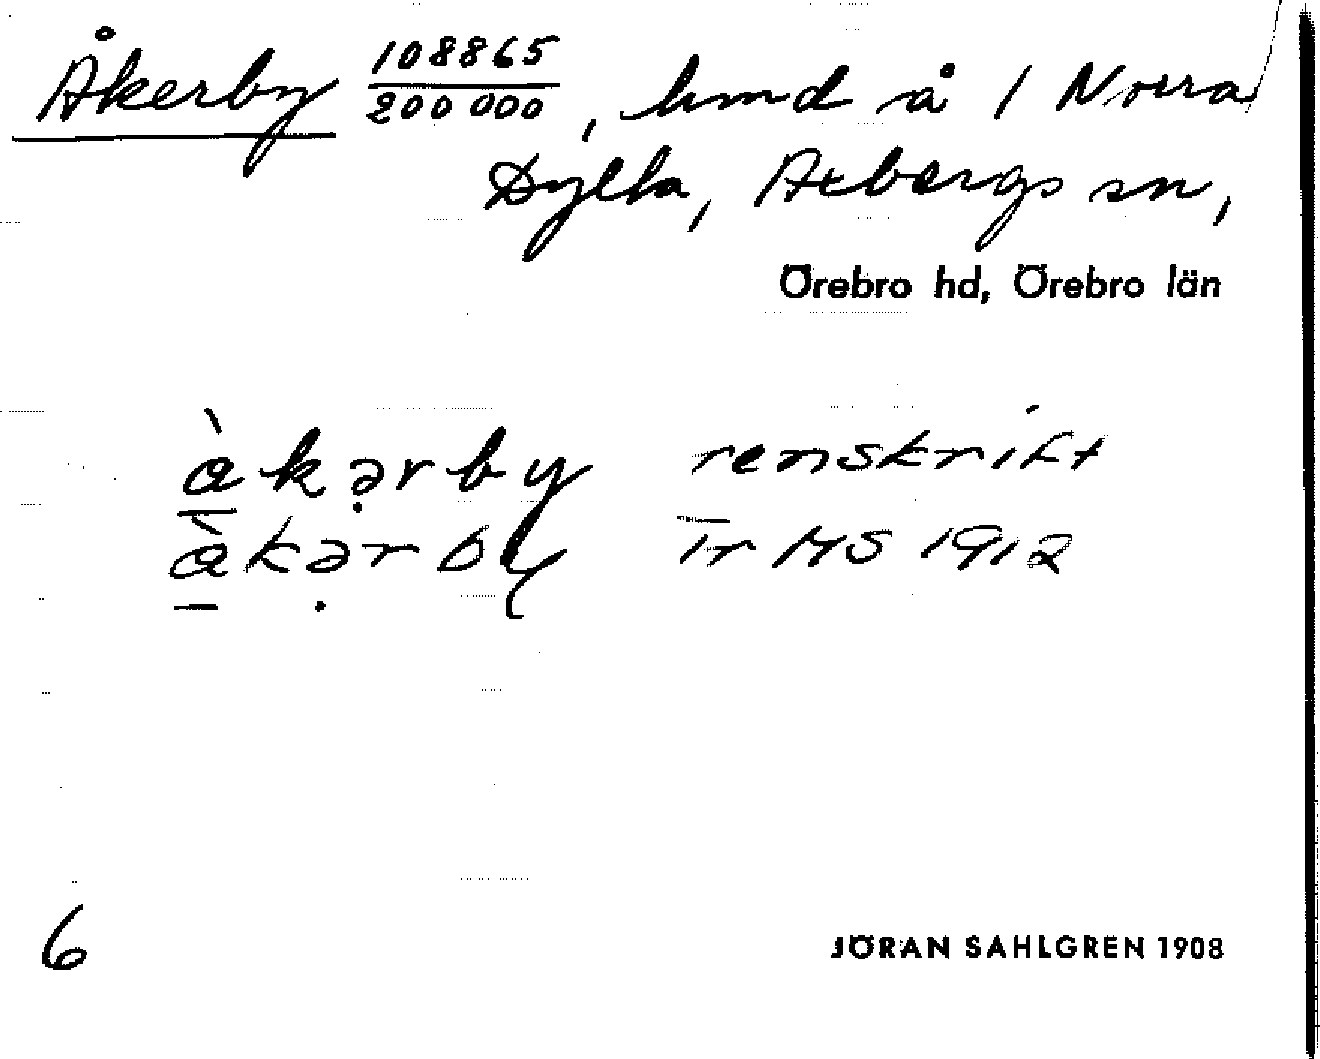 Åkerby 108865/200 000, hmd å 1 Norra
Dylta, Axbergs sn,
Örebro hd, Örebro län
å̀kə̣rby renskrift
å̀kə̣rby Tr MS 1912
6 JÖRAN SAHLGREN 1908